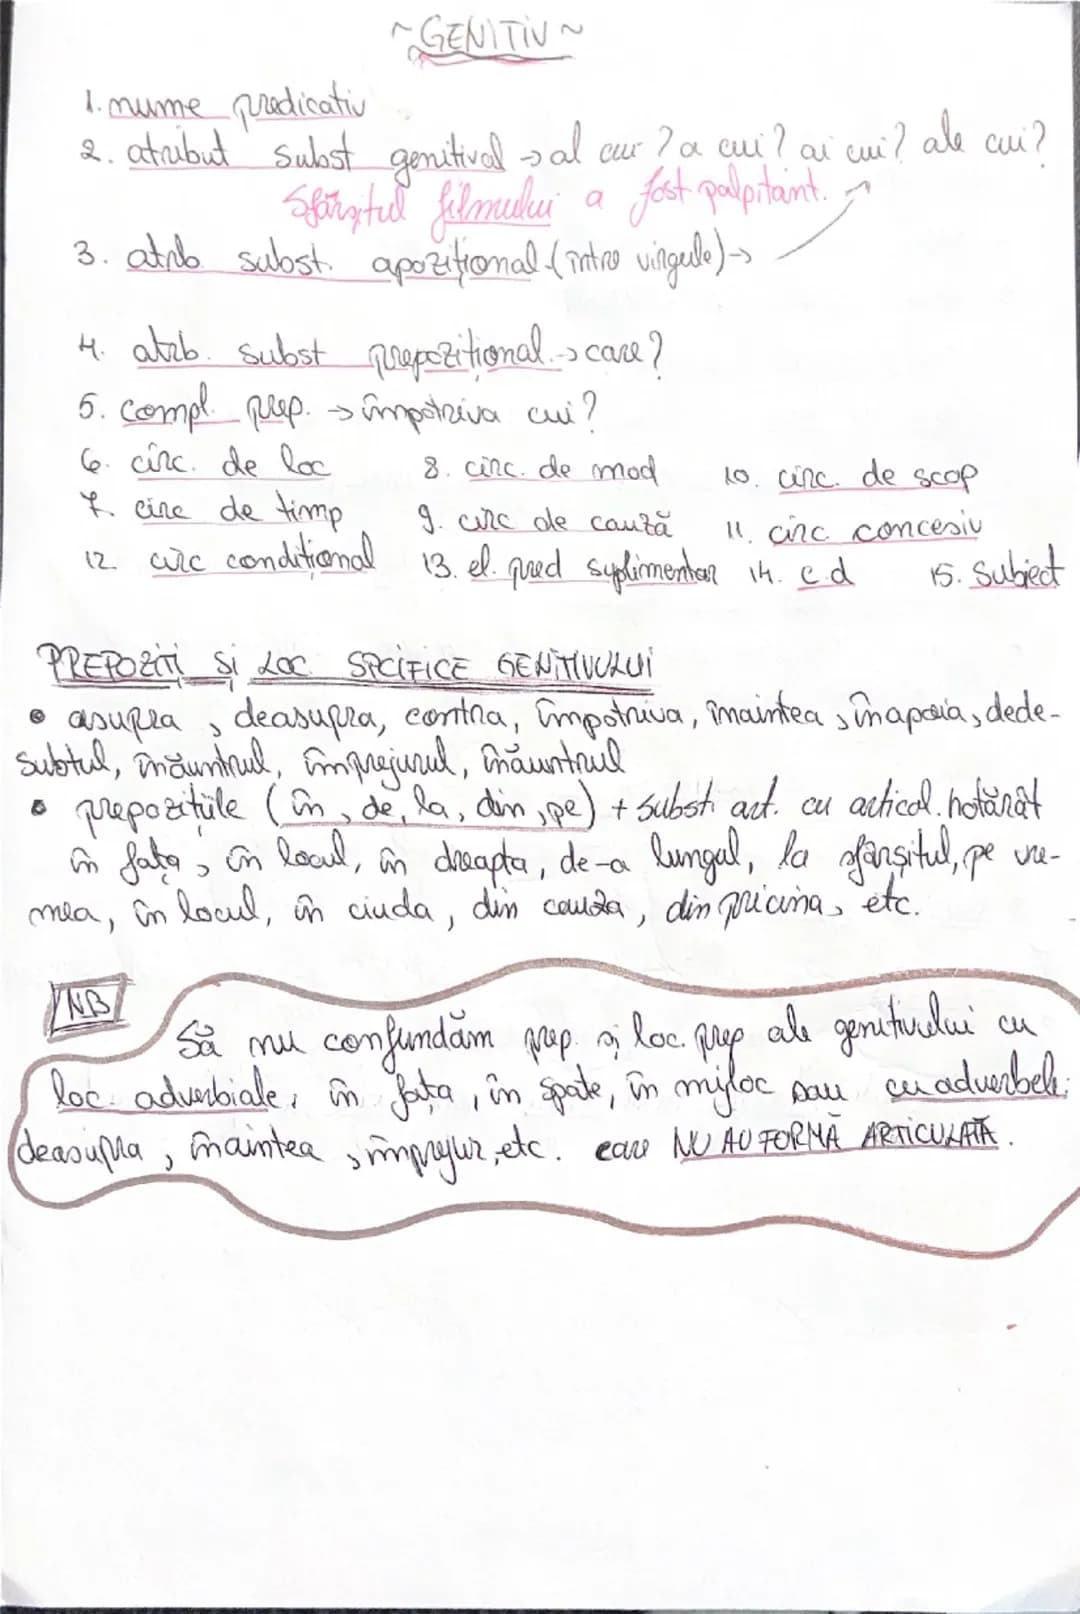 ~GENITIV~
1. nume predicativ
2. atribut subst genitival → al cui? a cui? ai cui? ale cui?
Sfârșitul filmului a fost palpitant.
3. atrb. subst. apozițional (între virgule)→
4. atrb. subst prepozițional → care?
5. compl. prep. → împotriva cui?
6. circ. de loc 8. circ. de mod 10. circ. de scop
7. circ de timp 9. circ de cauză 11. circ concesiv
12. circ condițional 13. el. pred suplimentar 14. c.d 15. Subiect
PREPOZIȚI ȘI LOC SPCIFICE GENITIVULUI
• asupra, deasupra, contra, împotriva, înaintea, înapoia, dede-
subtul, înăuntrul, împrejurul, înăuntrul
• prepozițiile (în, de, la, din, pe) + subst. art. cu articol. hotărât
în fața, în locul, în dreapta, de-a lungul, la sfârșitul, pe vre-
mea, în locul, în ciuda, din cauza, din pricina, etc.
NB
Să nu confundăm prep. și loc. prep ale genitivului cu
loc. adverbiale: în fața, în spate, în mijloc sau cu adverbele:
deasupra, înaintea, împrejur, etc. care NU AU FORMĂ ARTICULATĂ.